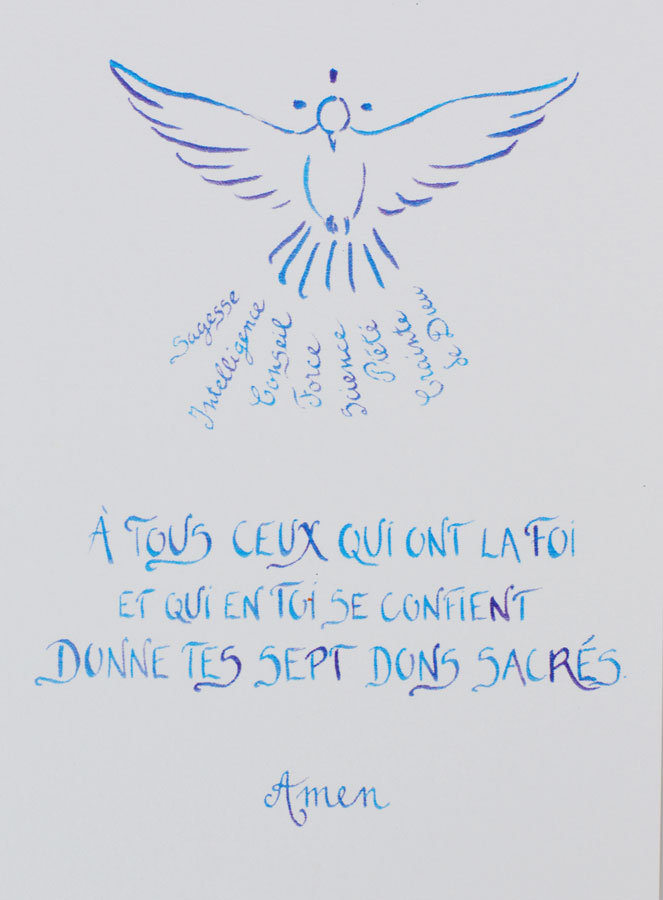 Sagesse
Intelligence
Conseil
Force
Science
Piété
Crainte
de Dieu
À TOUS CEUX QUI ONT LA FOI
ET QUI EN TOI SE CONFIENT
DONNE TES SEPT DONS SACRÉS.
Amen